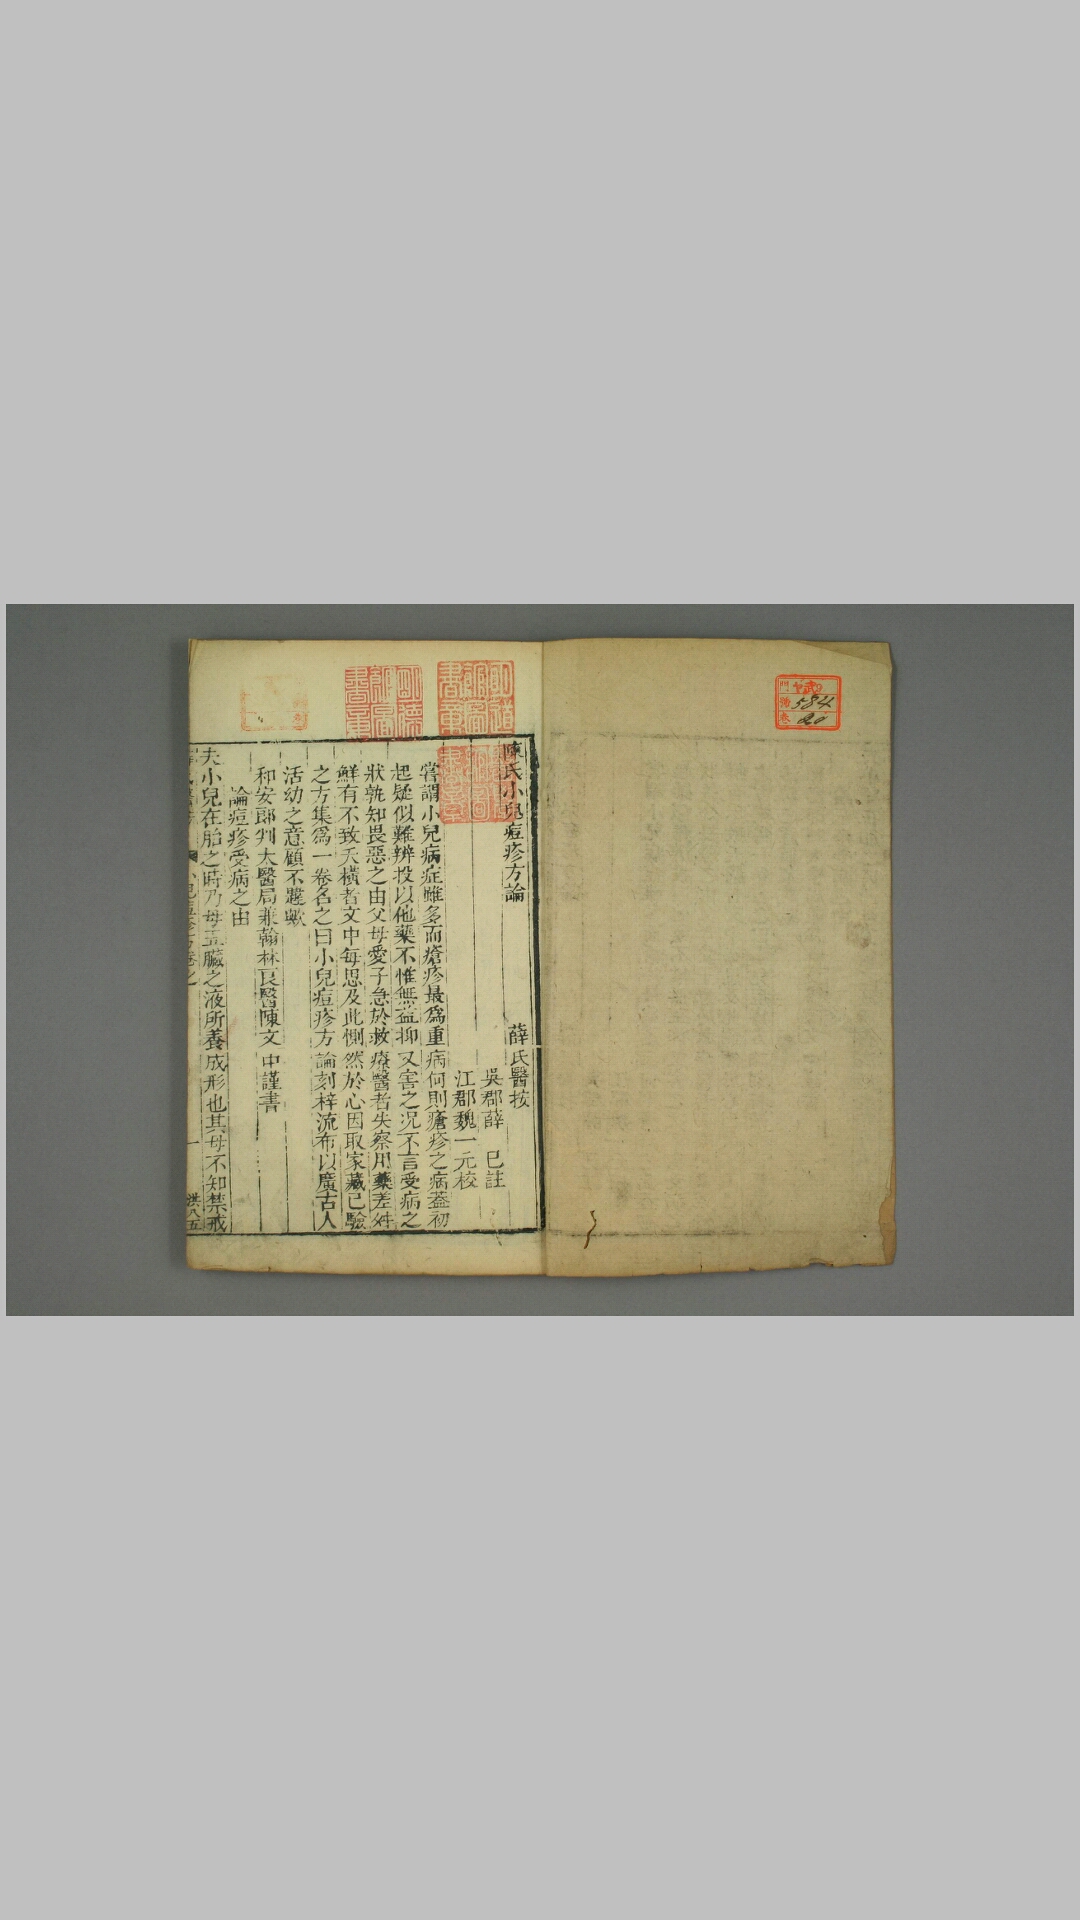 584
20
陳氏小兒痘疹方論
薛氏醫按
吳郡薛 已註
江郡魏一元校
嘗謂小兒病症雖多而瘡疹最爲重病何則瘡疹之病葢初
起疑似難辨投以他藥不惟無益抑又害之况不言受病之
狀孰知畏惡之由父母愛子急於救療醫者失察用藥差舛
鮮有不致夭橫者文中每思及此惻然於心因取家藏已驗
之方集爲一卷名之曰小兒痘疹方論刻梓流布以廣古人
活幼之意顧不韙歟
和安郎判太醫局兼翰林良醫陳文中謹書
論痘疹受病之由
夫小兒在胎之時乃母五臟之液所養成形也其母不知禁戒